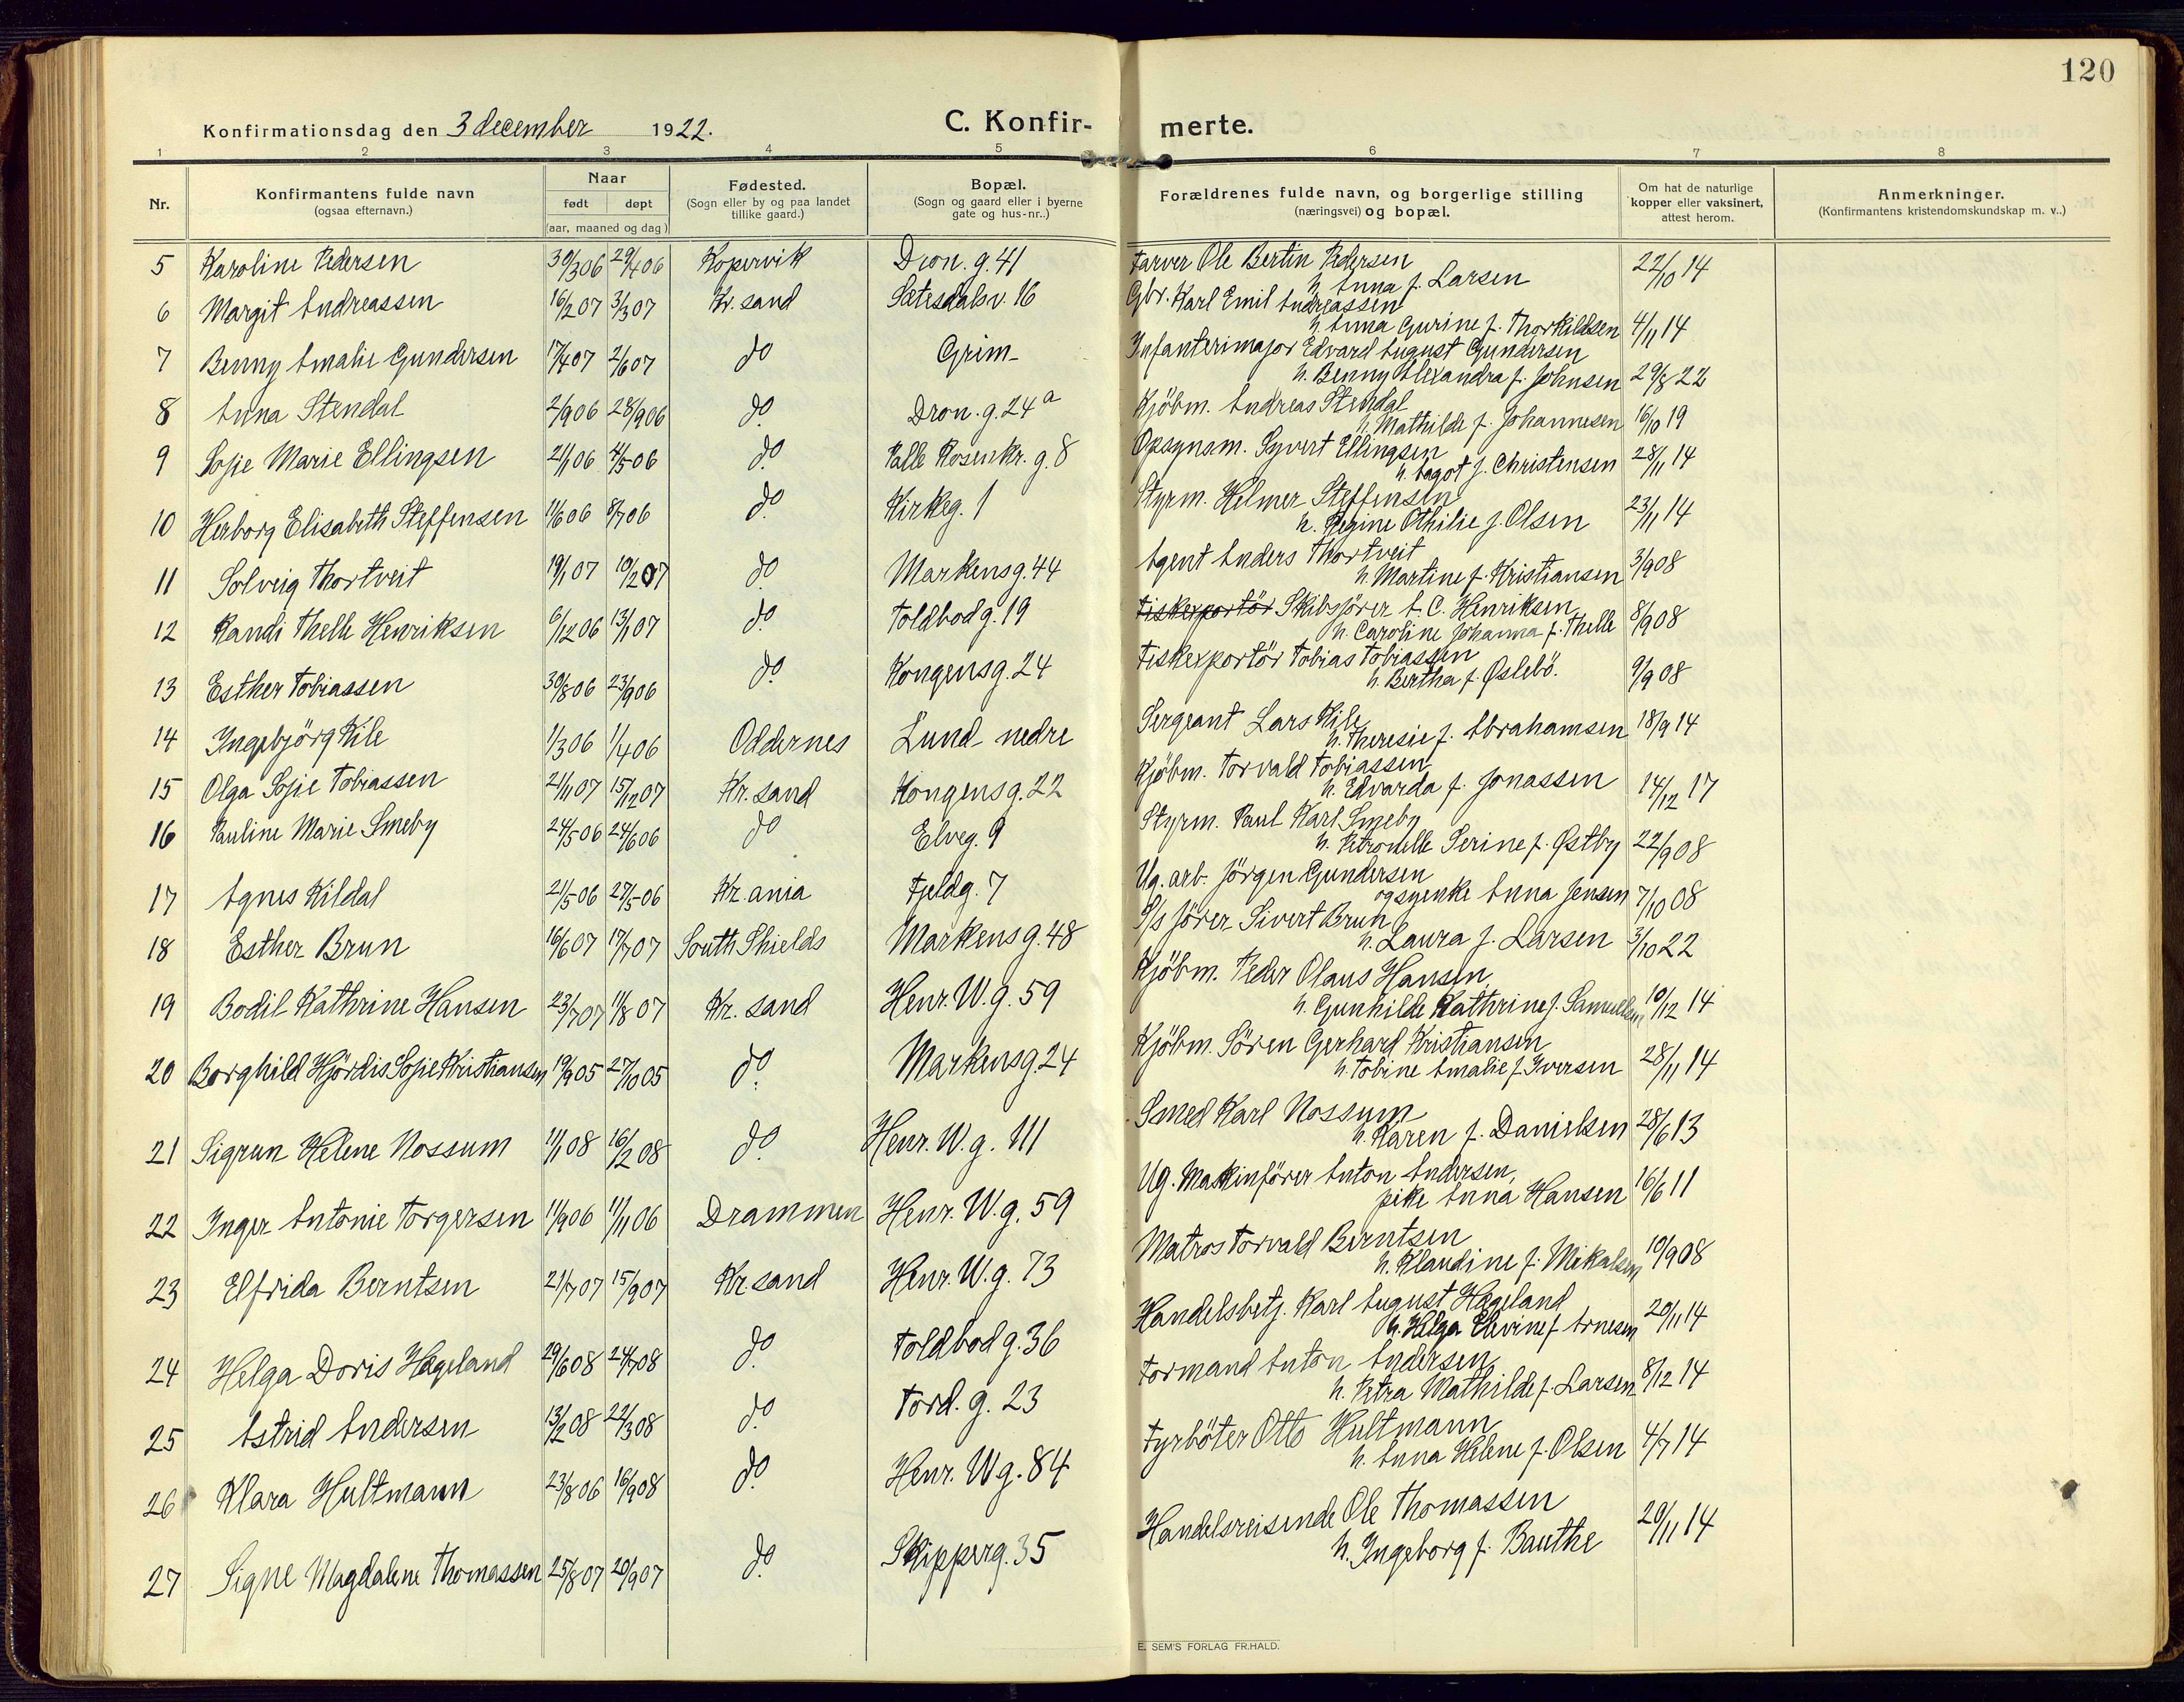 120
Konfirmationsdag den 3 december 1922.
C. Konfir- merte.
1 2 3 4 5 6 7 8
Nr.
Konfirmantens fulde navn
(ogsaa efternavn.)
Naar
født døpt
(aar, maaned og dag)
Fødested.
(Sogn eller by og paa landet
tillike gaard.)
Bopæl.
(Sogn og gaard eller i byerne
gate og hus-nr..)
Forældrenes fulde navn, og borgerlige stilling
(næringsvei) og bopæl.
Om hat de naturlige
kopper eller vaksinert,
attest herom.
Anmerkninger.
(Konfirmantens kristendomskundskap m. v..)
5 Karoline Pedersen 30/3 06 29/4 06 Kopervik Dron. g. 41 Farver Ole Bertin Pedersen
h. Anna f. Larsen 22/10 14
6 Margit Andreassen 16/2 07 3/3 07 Kr. sand Sætesdalsv. 16 Gbr. Karl Emil Andreassen
h. Anna Gurine f. Thorkildsen 4/11 14
7 Benny Amalie Gundersen 17/4 07 2/6 07 do Grim Infanterimajor Edvard August Gundersen
h. Benny Alexandra f. Johnsen 29/8 22
8 Anna Stendal 2/9 06 28/9 06 do Dron. g. 24 a Kjöbm. Andreas Stendal
h. Mathilde f. Johannesen 16/10 19
9 Sofie Marie Ellingsen 21/1 06 4/5 06 do Palle Rosenkr. g. 8 Opsynsm. Syvert Ellingsen
h. Aagot f. Christensen 28/11 14
10 Herborg Elisabeth Steffensen 11/6 06 8/7 06 do Kirkeg. 1 Styrm. Helmer Steffensen
h. Regine Othilie f. Olsen 23/11 14
11 Solveig Thortveit 19/1 07 10/2 07 do Markensg. 44 Agent Anders Thortveit
h. Martine f. Kristiansen 3/9 08
12 Randi Thelle Henriksen 6/12 06 13/1 07 do Toldbodg. 19 Fiskexportör Skibsförer A. C. Henriksen
h. Caroline Johanna f. Thelle 8/9 08
13 Esther Tobiassen 30/8 06 23/9 06 do Kongensg. 24 Fiskexportör Tobias Tobiassen
h. Bertha f. Øslebö. 9/9 08
14 Ingebjörg Kile 1/3 06 1/4 06 Oddernes Lund nedre Sergeant Lars Kile
h. Theresie f. Abrahamsen 18/9 14
15 Olga Sofie Tobiassen 21/11 07 15/12 07 Kr. sand Kongensg. 22 Kjöbm. Torvald Tobiassen
h. Edvarda f. Jonassen 14/12 17
16 Pauline Marie Smeby 24/5 06 24/6 06 do Elveg. 9 Styrm. Paul Karl Smeby
h. Petronelle Serine f. Østby 22/9 08
17 Agnes Kildal 21/5 06 27/5 06 Kr. ania Fjeldg. 7 Ug. arb. Jörgen Gundersen
og syenke Anna Jensen 7/10 08
18 Esther Brun 16/6 07 17/7 07 South Shields Markensg. 48 S/s förer Sivert Brun
h. Laura f. Larsen 3/10 22
19 Bodil Kathrine Hansen 23/7 07 11/8 07 Kr. sand Henr. W. g. 59 Kjöbm. Peder Olaus Hansen
h. Gunhilde Kathrine f. Samuelsen 10/12 14
20 Borghild Hjördis Sofie Kristiansen 19/9 05 27/10 05 do Markensg. 24 Kjöbm. Sören Gerhard Kristiansen
h. Tobine Amalie f. Iversen 28/11 14
21 Sigrun Helene Nossum 11/1 08 16/2 08 do Henr. W. g. 111 Smed Karl Nossum
h. Karen f. Danielsen 28/6 13
22 Inger Antonie Torgersen 11/9 06 11/11 06 Drammen Henr. W. g. 59 Ug. Maskinförer Anton Andersen,
pike Anna Hansen 16/6 11
23 Elfrida Berntsen 21/7 07 15/9 07 Kr. sand Henr. W. g. 73 Matros Torvald Berntsen
h. Klaudine f. Mikalsen 10/9 08
24 Helga Doris Hageland 29/6 08 24/7 08 do Toldbod g. 36 Handelsbetj. Karl August Hageland
h. Helga Elevine f. Arnesen 20/11 14
25 Astrid Andersen 13/2 08 22/3 08 do Tord. g. 23 Formand Anton Andersen
h. Petra Mathilde f. Larsen 8/12 14
26 Klara Hultmann 23/8 06 16/9 08 do Henr. W g. 84 Fyrböter Otto Hultmann
h. Anna Helene f. Olsen 4/7 14
27 Signe Magdalene Thomassen 25/8 07 20/9 07 do Skipperg. 35 Handelsreisende Ole Thomassen
h. Ingeborg f. Bauthe 20/11 14
E. SEM'S FORLAG FR.HALD.